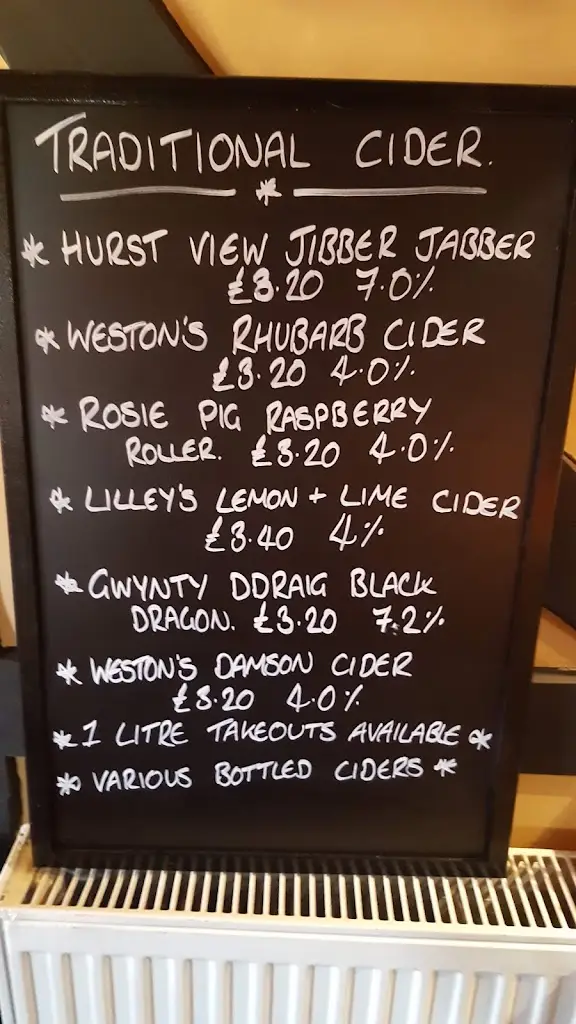 TRADITIONAL CIDER.
*
* HURST VIEW JIBBER JABBER
£3.20 7.0%
* WESTON'S RHUBARB CIDER
£3.20 4.0%
* ROSIE PIG RASPBERRY
ROLLER. £3.20 4.0%
* LILLEY'S LEMON + LIME CIDER
£3.40 4%
* GWYNTY DDRAIG BLACK
DRAGON. £3.20 7.2%
* WESTON'S DAMSON CIDER
£3.20 4.0%
* 1 LITRE TAKEOUTS AVAILABLE *
* VARIOUS BOTTLED CIDERS *